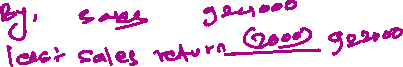 By, Sales 924000
less: Sales return (2000) 922000